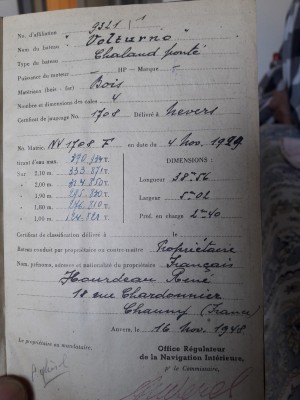 N° d'affiliation 9321
Nom du bateau "Volturno"
Type du bateau Chaland ponté
Puissance du moteur — HP - Marque —
Matériaux (bois - fer) Bois
Nombre et dimensions des cales 4
Certificat de jaugeage N° 1708 Délivré à Nevers
No. Matric. NV 1708 F en date du 4 Nov. 1929
tirant d'eau max.
DIMENSIONS :
Sur 2,10 m.
2,00 m. Longueur 38.56
1,90 m. Largeur 5.02
1,80 m. Prof. en charge 2.40
1,00 m.
Certificat de classification délivré à
Bateau conduit par propriétaire ou contre-maître Propriétaire
Nom, prénoms, adresse et nationalité du propriétaire Français
Hourdeau René
18 rue Chardonnier
Chauny (France)
Anvers, le 16 Nov. 1948
Le propriétaire ou mandataire,
Office Régulateur
de la Navigation Intérieure,
Le Commissaire,